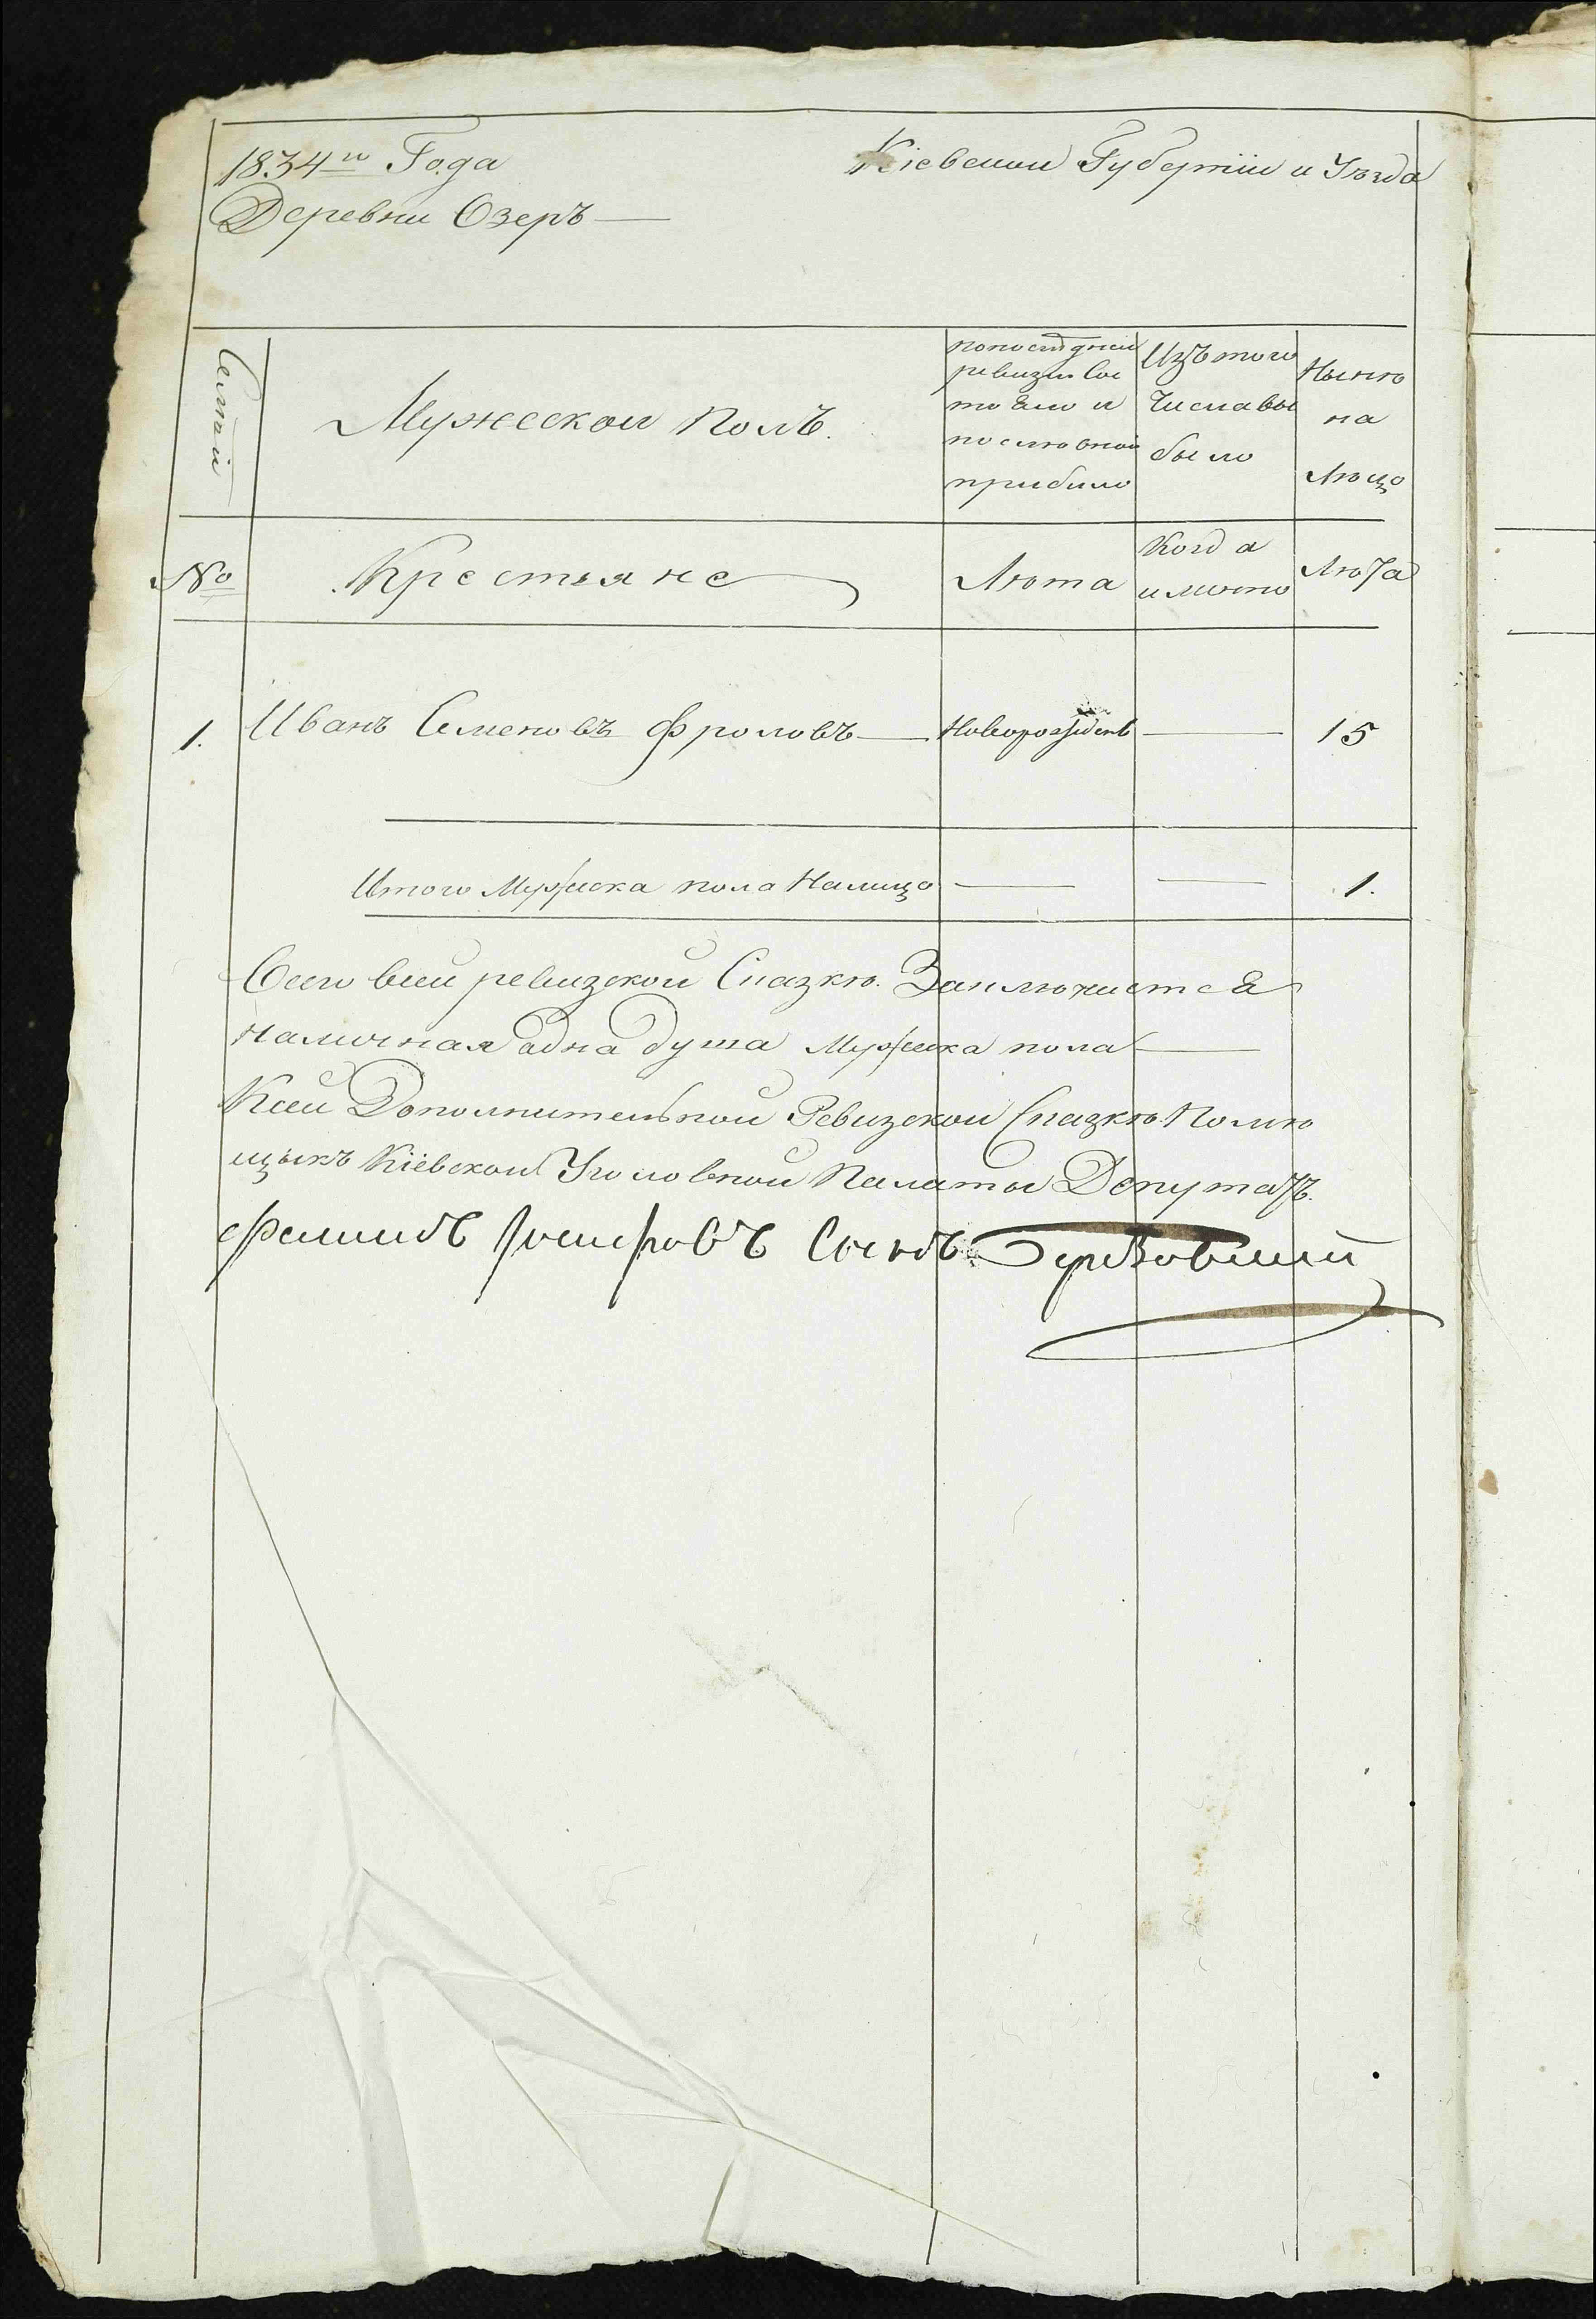 1834го Года
Кіевской Губерніи и Уѣзда
Деревни Озеръ
Семьи
Мужескои полъ.
попослѣдней
ревизіи Сос
тояло и
послѣ оной
прибыло
Изътого
числавы
было
Нынѣ
на
лицо
№
Крестьяне
Лѣта
Когда
имянно
Лѣта
1. Иванъ Семеновъ Фроловъ Новорожденъ 15
Итого Мужеска пола Налицо 1.
Всего всей ревизской Сказкѣ. Заключается
наличная одна душа Мужеска пола
Ксей Дополнительной Ревизской Сказкѣ Помѣ
щыкъ Кіевской Уголовной Палаты Депутатъ.
Сынъ